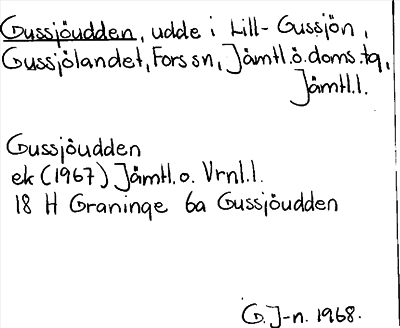 Gussjöudden, udde i Lill-Gussjön,
Gussjölandet, Fors sn, Jämtl.ö.doms.tg,
Jämtl.l.
Gussjöudden
ek (1967) Jämtl.o. Vrnl.l.
18 H Graninge 6a Gussjöudden
G.J-n. 1968.